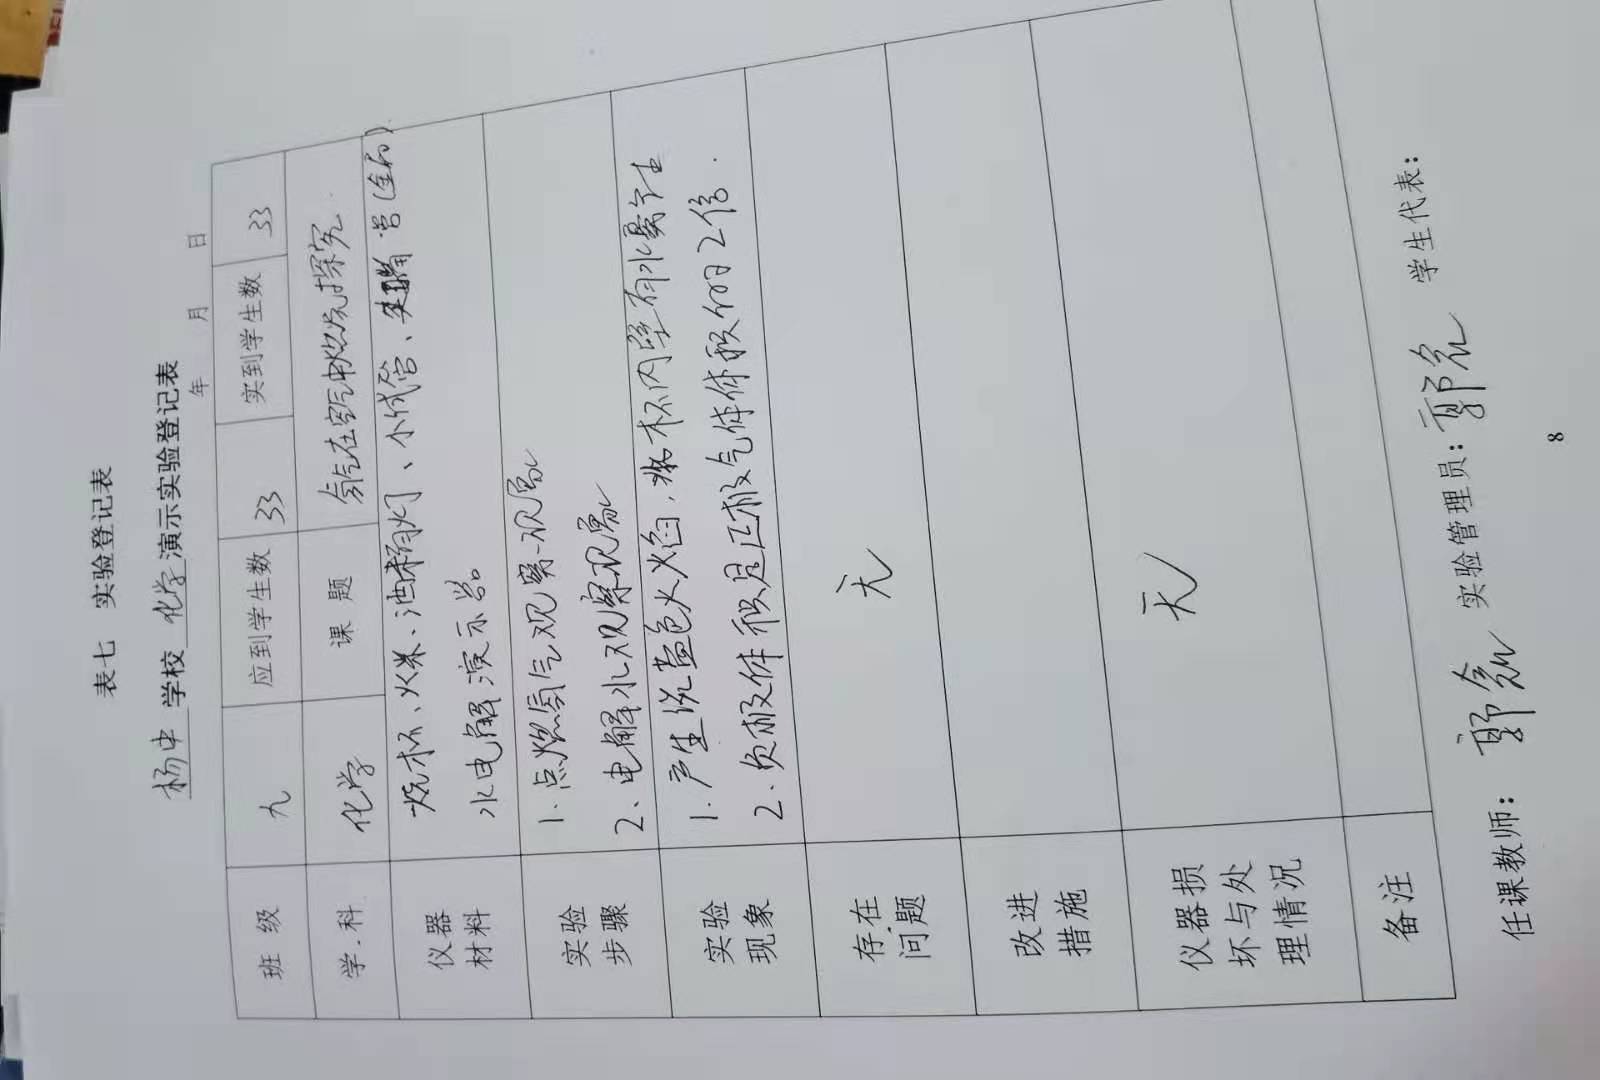 表七 实验登记表
杨中 学校 化学 演示实验登记表
年 月 日
班 级 九 应到学生数 33 实到学生数 33
学 科 化学 课 题 氢气在空气中燃烧探究.
仪器
材料
烧杯、火柴、酒精灯、小试管、尖嘴管(金的).
水电解演示器
实验
步骤
1. 点燃氢气观察现象
2. 电解水观察现象
实验
现象
1. 产生淡蓝色火焰,烧杯内壁有水雾产生
2. 负极体积是正极气体体积的2倍.
存在
问题
无
改进
措施
仪器损
坏与处
理情况
无
备注
任课教师: 实验管理员: 学生代表:
8